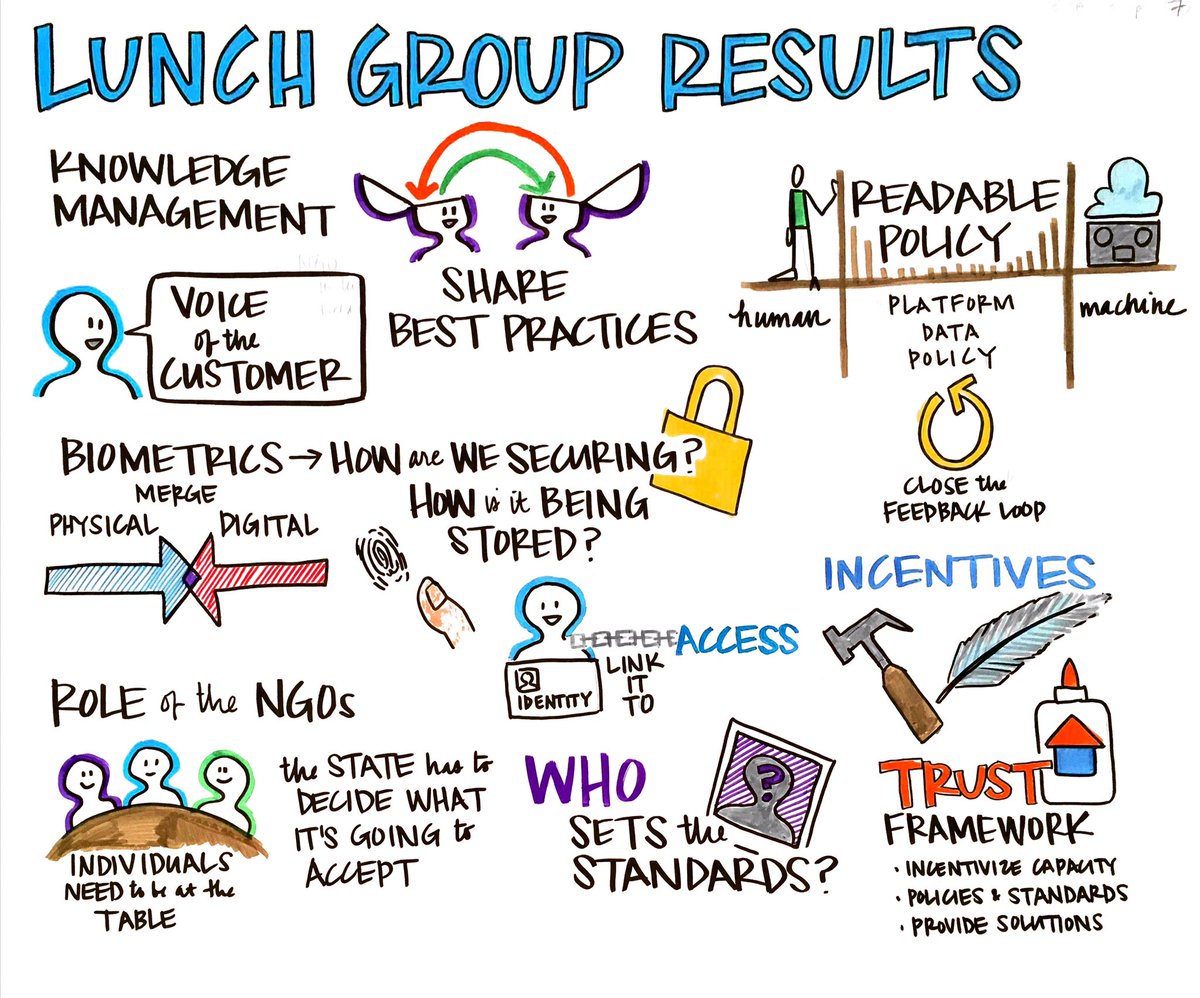 LUNCH GROUP RESULTS
KNOWLEDGE
MANAGEMENT
SHARE
BEST PRACTICES
VOICE
of the
CUSTOMER
READABLE
POLICY
human
machine
PLATFORM
DATA
POLICY
CLOSE the
FEEDBACK LOOP
BIOMETRICS → HOW are WE SECURING?
HOW is it BEING
STORED?
MERGE
PHYSICAL
DIGITAL
IDENTITY
LINK
IT
TO
ACCESS
INCENTIVES
ROLE of the NGOs
INDIVIDUALS
NEED to be at the
TABLE
the STATE has to
DECIDE WHAT
IT'S GOING to
ACCEPT
WHO
SETS the
STANDARDS?
?
TRUST
FRAMEWORK
• INCENTIVIZE CAPACITY
• POLICIES & STANDARDS
• PROVIDE SOLUTIONS